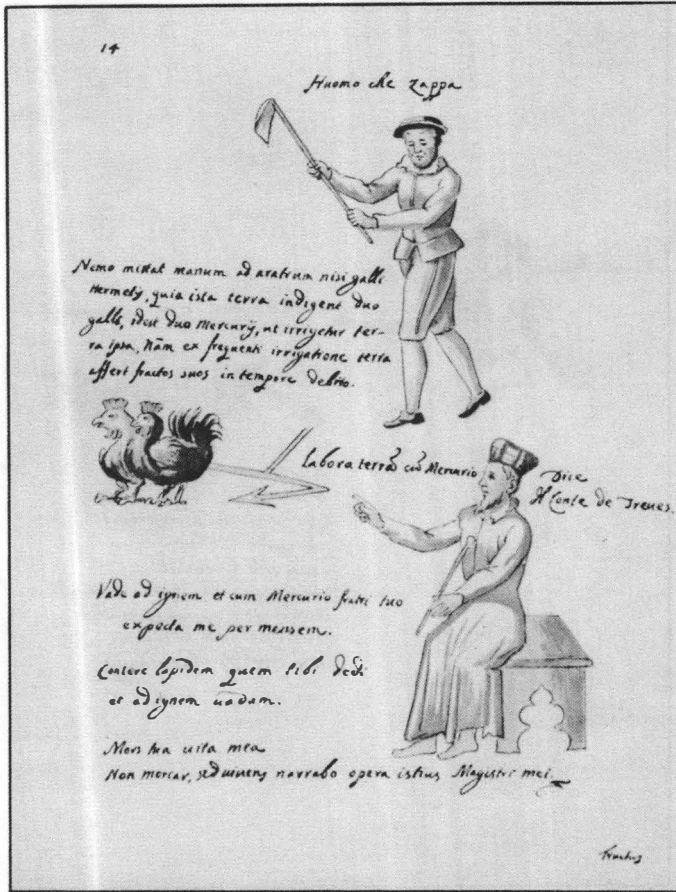 14
Huomo che Zappa
Nemo mittat manum ad aratrum nisi galli
Hermetis, quia ista terra indigent duo
galli, idest duo Mercurij, ut irrigetur ter-
ra ipsa, Nam ex frequenti irrigatione terra
affert fructos suos in tempore debito.
Labora terrā cū Mercurio
Dice
Il Conte de Treues.
Vade ad ignem et cum Mercurio fratri tuo
expecta me per mensem.
Contere lapidem quem tibi dedi
et ad ignem uadam.
Mors tua uita mea
Non moriar, sed uiuens narrabo opera istius Magistri mei